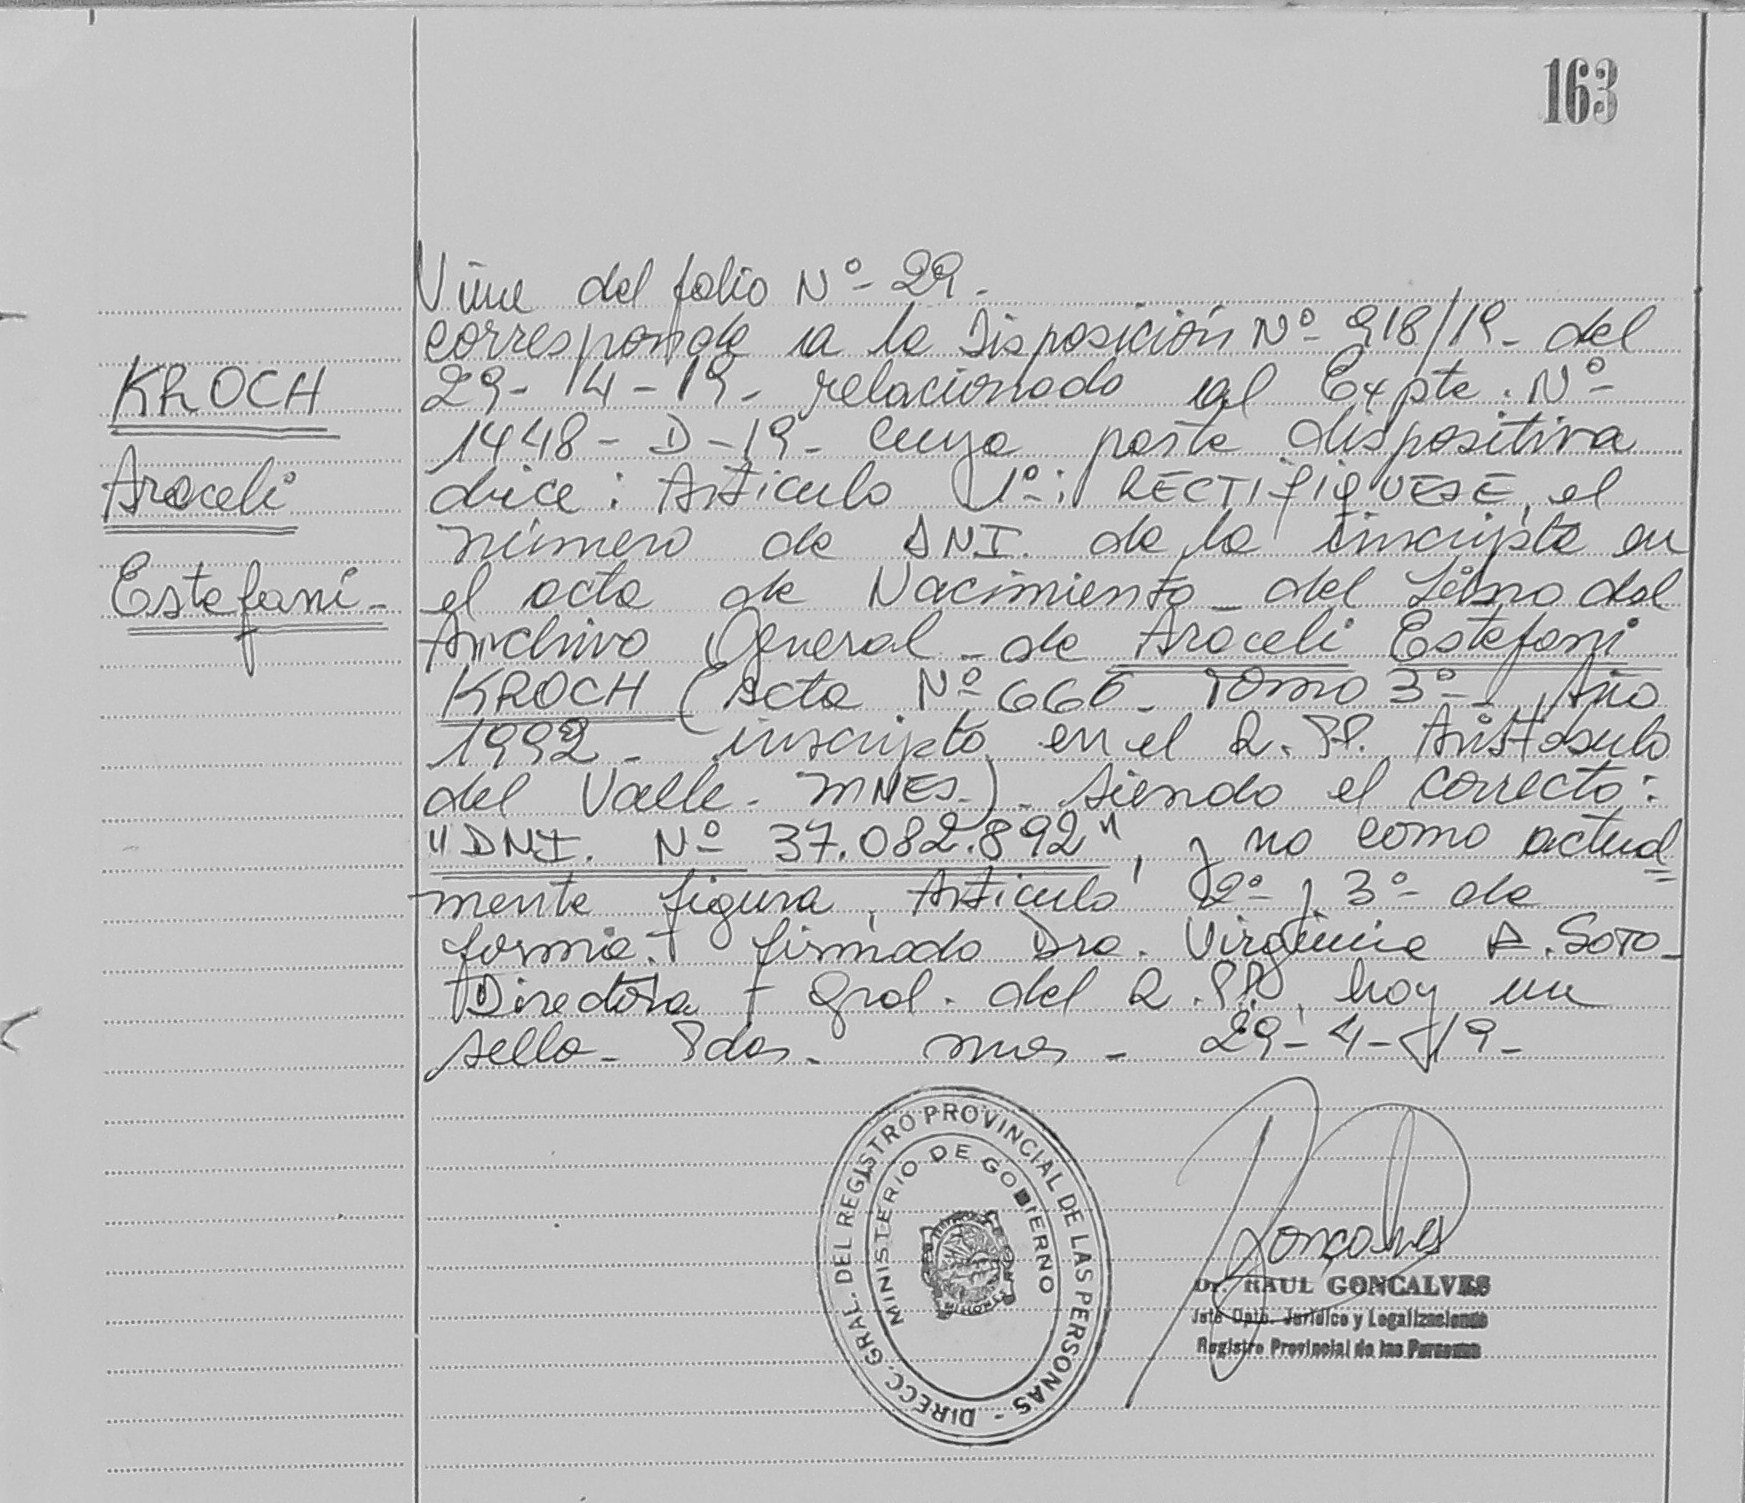 163
Viene del folio Nº- 29.-
corresponde a la Disposición Nº- 918/19- del
KROCH
29- 4-19- relacionado al Expte. Nº-
1448- D-19- cuya parte dispositiva
Araceli
dice: Artículo 1º-: RECTIFIQUESE, el
número de DNI. de la inscripta en
Estefani-
el acta de Nacimiento- del Libro del
Archivo General- de Araceli Estefani
KROCH (acta Nº 666- Tomo 3º- Año
1992- inscripto en el R.PP. Aristobulo
del Valle- MNES-)- siendo el correcto:
"DNI. Nº 37.082.892", y no como actual
mente figura, Artículo 2º- y 3º- de
forma. firmado Dra. Virginia A. Soto-
Directora Gral. del R.PP, hoy un
sello- Pdas- mnes- 29-4-19-
DIRECC. GRAL. DEL REGISTRO PROVINCIAL DE LAS PERSONAS -
MINISTERIO DE GOBIERNO
MISIONES
Goncalves
Dr. RAUL GONCALVES
Jefe Dpto. Jurídico y Legalizaciones
Registro Provincial de las Personas